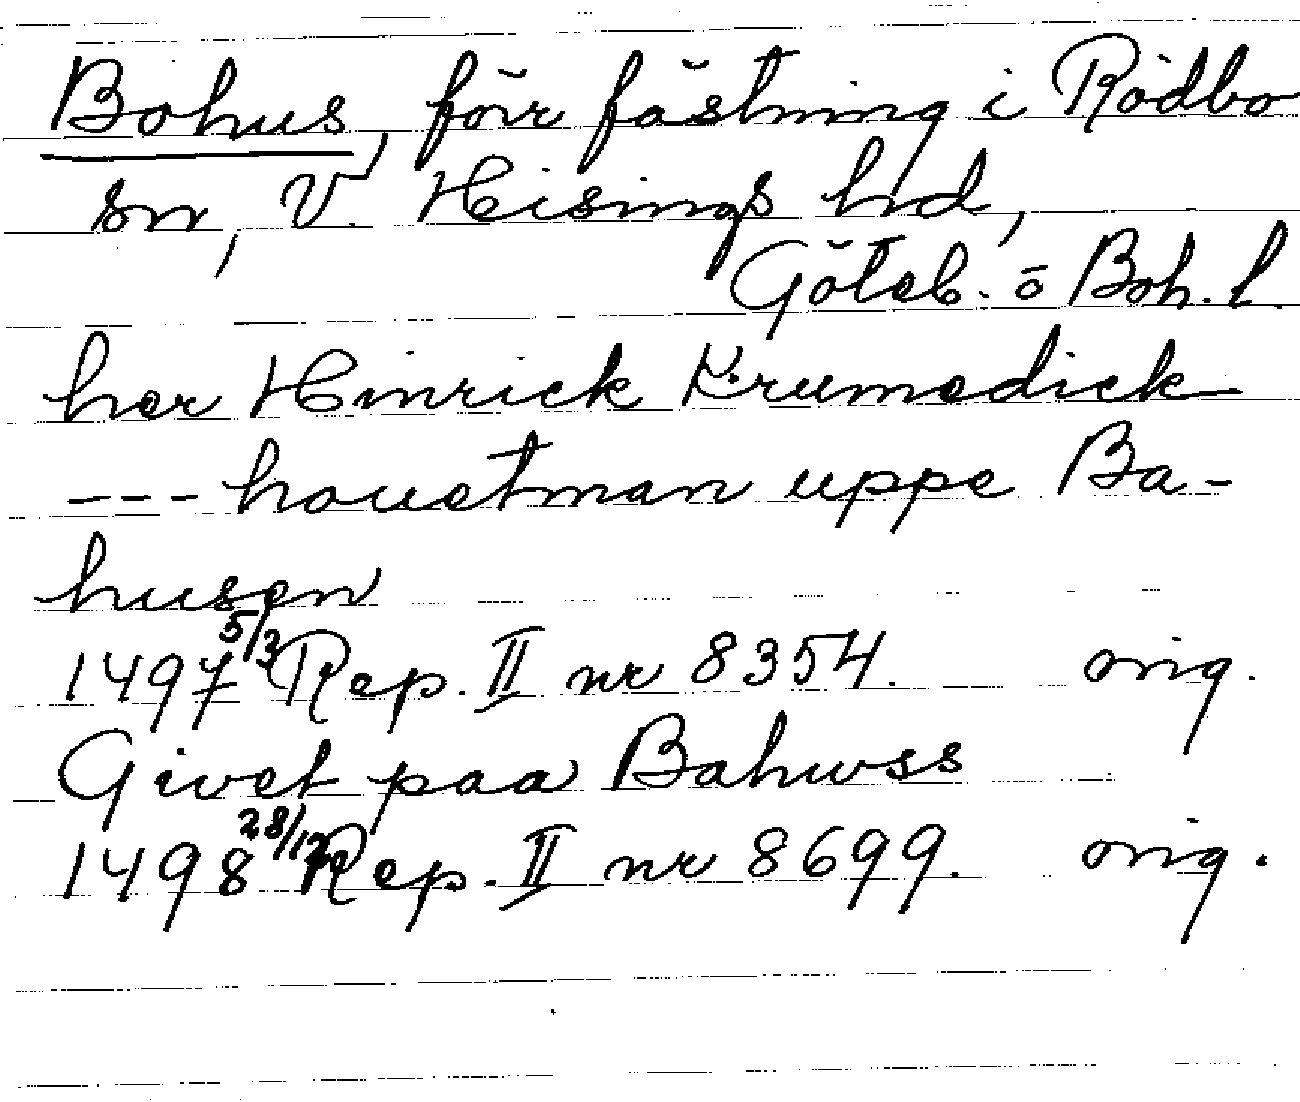 Bohus, förr fästning i Rödbo
sn, V. Hisings hd,
Göteb. o Boh. l.
her Hinrick Krumedick
--- houetman uppe Ba-
husen
1497 5/3 Rep. II nr 8354. orig.
Givet paa Bahwss
1498 28/12 Rep. II nr 8699. orig.